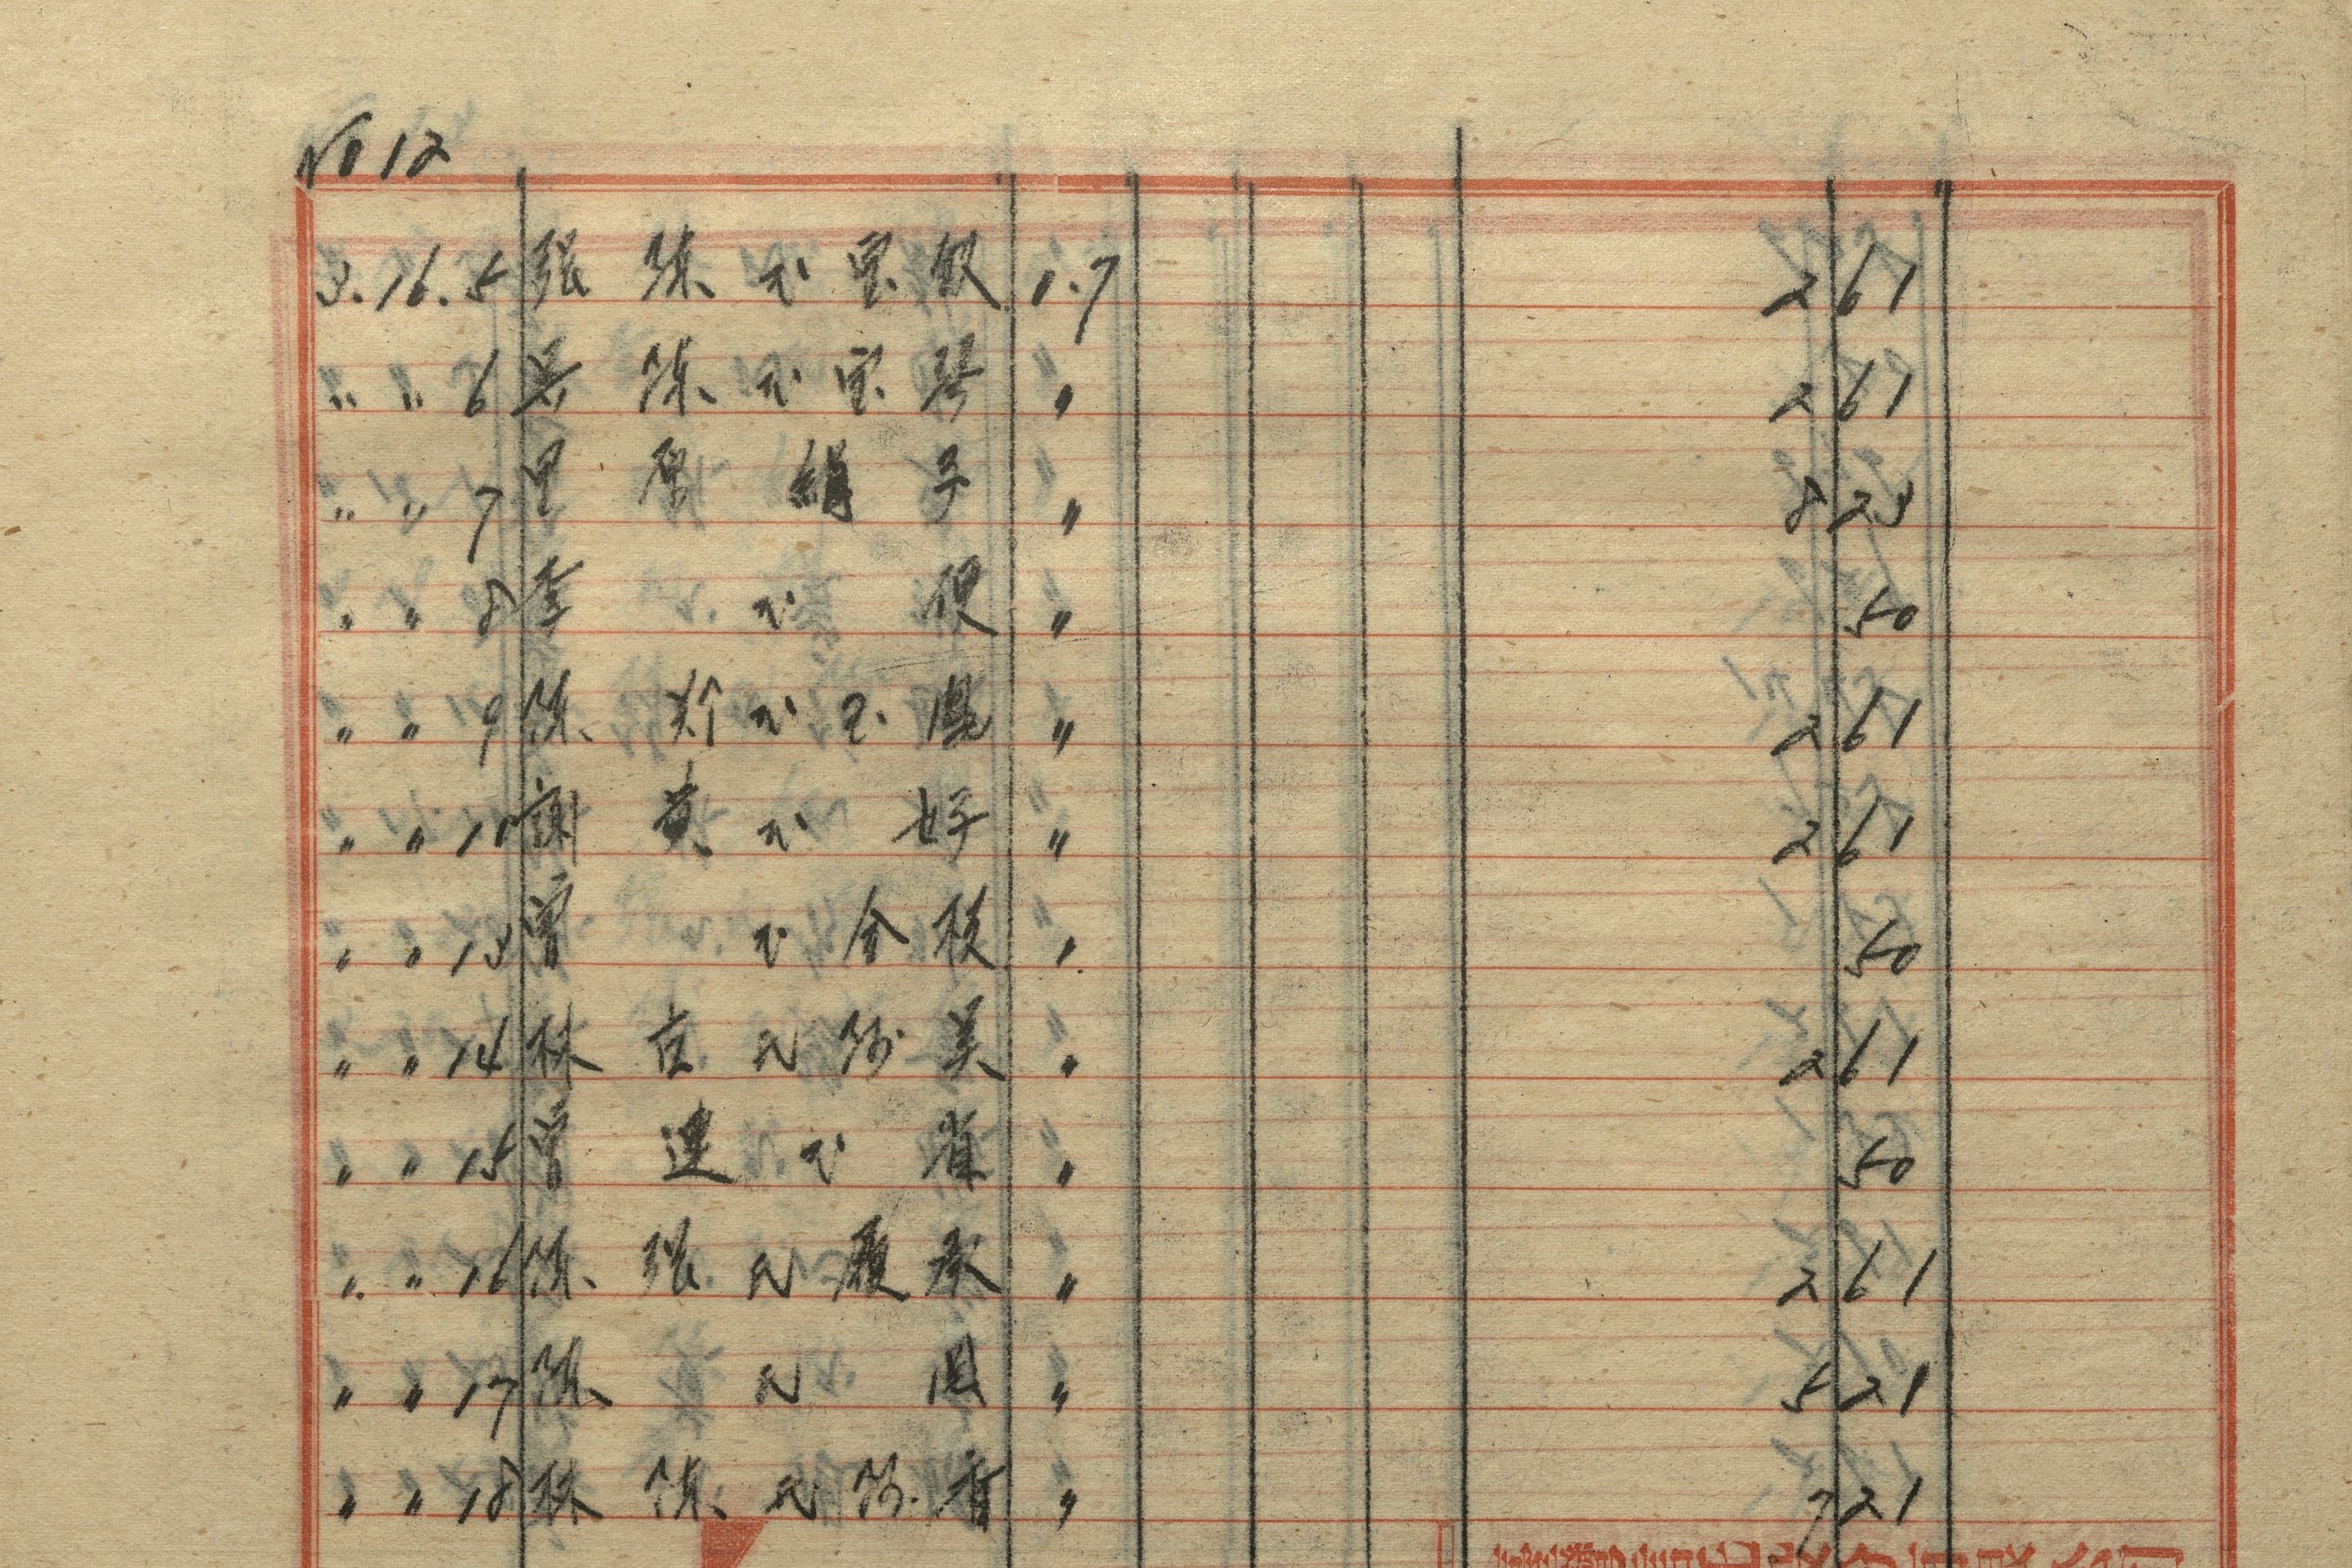 No 12
3.16.5 張 陳 氏 宝 銀 1.7 2 61
〃 〃 6 吴 陳 氏 宝 琴 〃 2 61
〃 〃 7 里 原 絹 子 〃 8 23
〃 〃 8 李 氏 便 〃 50
〃 〃 9 陳 鄭 氏 玉 恩 〃 2 61
〃 〃 10 謝 黄 氏 好 〃 2 61
〃 〃 13 曾 氏 金 枝 〃 50
〃 〃 14 林 氏 美 〃 2 61
〃 〃 15 曾 連 氏 省 〃 50
〃 〃 16 陳 張 氏 履 〃 2 61
〃 〃 17 陳 氏 恩 〃 5 21
〃 〃 18 林 陳 氏 香 〃 7 21